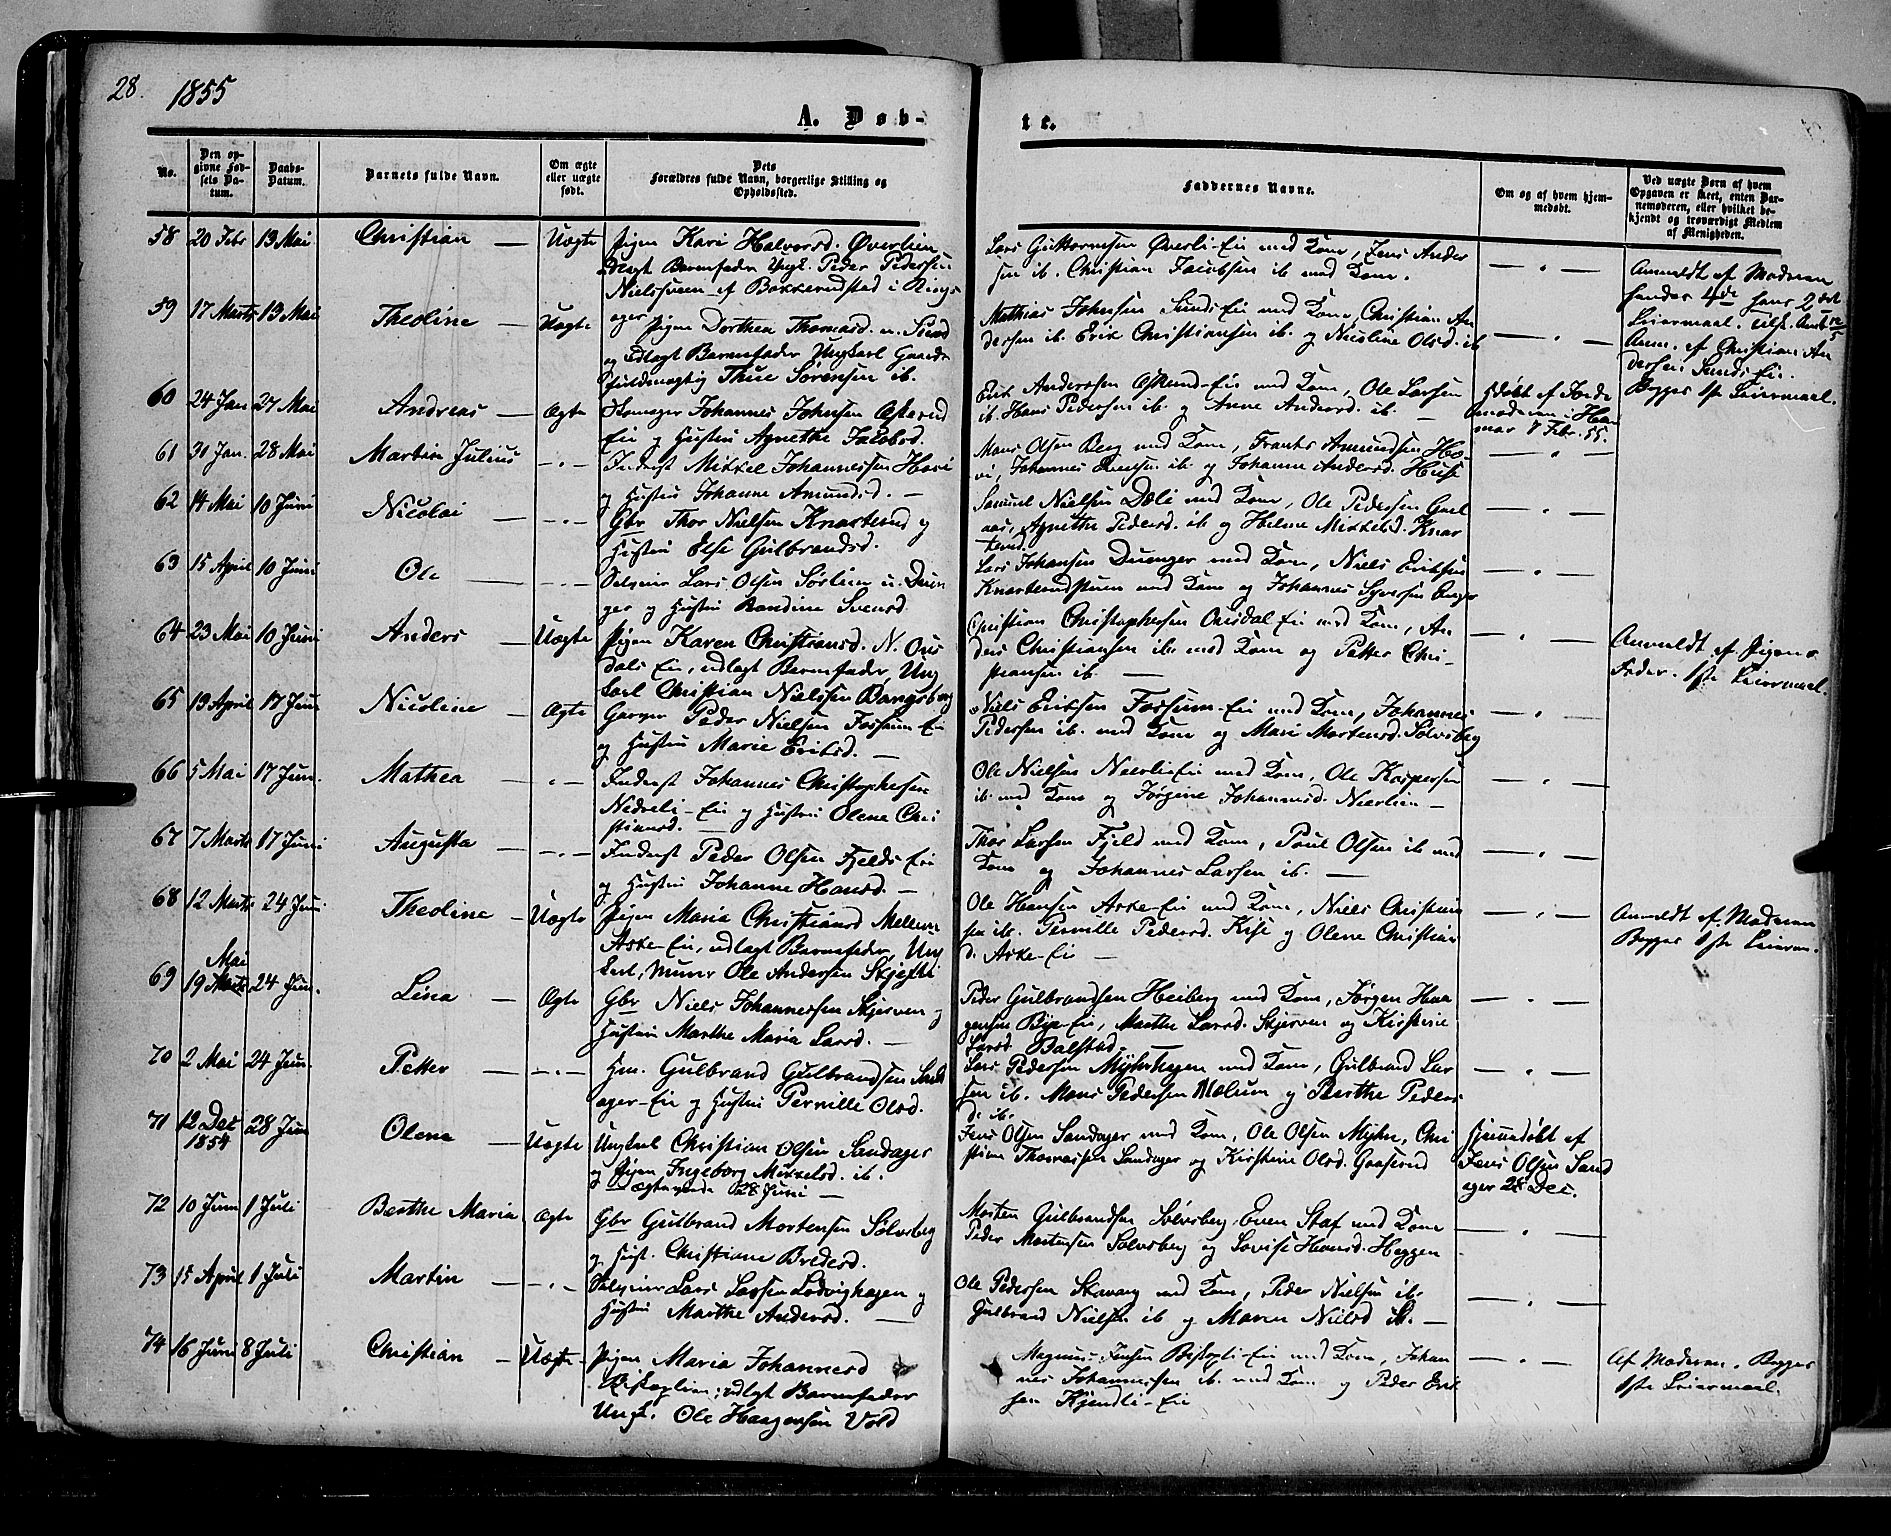 28. 1855
A. Døb-
te.
No.
Den op-
givne Fød-
sels Da-
tum.
Daabs-
Datum.
Barnets fulde Navn.
Om ægte
eller uægte
født.
Dets
Forældres fulde Navn, borgerlige Stilling og
Opholdssted.
Faddernes Navne.
Om og af hvem hjem-
medøbt.
Ved uægte Børn af hvem
Opgaven er skeet, enten Bar-
nemoderen, eller hvilket be-
kjendt og troværdigt Medlem
af Menigheden.
58 20 Febr 13 Mai Christian — Uægte Pigen Kari Halvorsd. Øverlien
udlagt Barnefader Ungk. Peder Pedersen
Nielshuen af Bakkerudstad i Rings
ager
Lars Guttormsen Øverli-Eie med Kone, Jens Ander
sen ib. Christian Jacobsen ib med Kone.
— " —
Anmeldt af Moderen
hendes 4de hans 2det
Leiermaal.
59 17 Marts 13 Mai Theoline — Uægte Pigen Dorthea Thomasd. u. Sund
og udlagt Barnefader Ungkarl Gaards
fuldmægtig Thue Sørensen ib.
Mathias Johnsen Sunds Eie med Kone, Christian An
dersen ib. Erik Christiansen ib. og Nicoline Olsd. ib
— " —
Anm. af Christian An
dersen Sunds Eie.
Begges 1ste Leiermaal.
60 24 Jan 27 Mai Andreas — Ægte Huusmager Johannes Johnsen
Eie og Hustru Agnethe Jacobsd.
Anderssen med Kone, Ole Larsen
ib. Hans Pedersen ib. og Anne Andersd. ib. —
Hjdøbt af Jorde
moderen i Ham
mar 7 Febr. 55.
61 31 Jan. 28 Mai Martin Julius — " — Inderst Mikkel Johannessen Hovi
og Hustru Johanne Amundsd. —
Mons Olsen Berg med Kone, Frants Amundsen Ho-
vi, Johannes ib. og Johanne Andersd. Huse
— " —
62 14 Mai 10 Juni Nicolai — " — Gbr Thor Nielsen Knarterud og
Hustru Else Gulbrandsd.
Samuel Nielsen Dæli med Kone, Ole Pedersen
Agnethe Pedersd. ib og Helene Mikkelsd. Knar
terud
— " —
63 15 April 10 Juni Ole — " — Selveier Lars Olsen Sørlien u. Duen
ger og Hustru Bondine Svensd.
Lars Johansen Duenger med Kone, Niels Eriksen
Knarterudstuen med Kone og Johannes Syversen
— " —
64 23 Mai 10 Juni Anders — Uægte Pigen Karen Christiansd. N. Ous
dals Eie, udlagt Barnefader, Ung
karl Christian Nielsen Bangsberg
Christian Christophersen Ousdal Eie med Kone, An
ders Christiansen ib. med Kone og Petter Chri-
stiansen ib. —
— " —
Anmeldt af Pigens
Fader. 1ste Leiermaal.
65 19 April 17 Juni Nicoline — Ægte Garver Peder Nielsen Fossum-Eie
og Hustru Marie Eriksd. —
Niels Eriksen Fossum-Eie med Kone, Johannes
Pedersen ib. med Kone og Mari Mortensd. Sølvsberg
— " —
66 5 Mai 17 Jun. Mathea — " — Inderst Johannes Christophersen
Nedreli-Eie og Hustru Olene Chri
stiansd. —
Ole Nielsen Nærli-Eie med Kone, Ole Kaspersen
ib. med Kone og Jørgine Johannesd. Nærlien —
— " —
67 7 Marts 17 Juni Augusta — " — Inderst Peder Olsen Fjelds-Eie
og Hustru Johanne Hansd. —
Thor Larsen Fjeld med Kone, Poul Olsen ib med
Kone og Johannes Larsen ib. —
— " —
68 12 Marts 24 Juni Theoline — Uægte Pigen Maria Christiansd Mellem
Aske-Eie, udlagt Barnefader, Ung
karl, Murer Ole Andersen Skjefli
Ole Hansen Aske-Eie med Kone, Niels Christian
sen ib. Pernille Pedersd. Kise og Olene Christian
d. Aske-Eie —
— " —
Anmeldt af Moderen
Begges 1ste Leierm.
Mai
69 19 Marts 24 Jun. Lina — Ægte Gbr Niels Johannessen Skjerven og
Hustru Marthe Maria Larsd. —
Peder Gulbrandsen Heiberg med Kone, Jørgen Haa
gensen Bye-Eie, Marthe Larsd. Skjerven og Kirstine
Larsd. Balstad. —
— " —
70 2 Mai 24 Jun. Petter — " — Hm. Gulbrand Gulbrandsen Sand
ager-Eie og Hustru Pernille Olsd.
Lars Pedersen Myhrhagen med Kone, Gulbrand Lar
sen ib. Mons Pedersen Mælum og Berthe Peders
d. ib.
— " —
71 12 Dec
1854 28 Jun Olene — Uægte Ungkarl Christian Olsen Sandager
og Pigen Ingeborg Mikkelsd. ib.
— ægteviede 28 Juni —
Jens Olsen Sandager med Kone, Ole Olsen Myhr, Chri
stian Thomassen Sandager og Kirstine Olsd. Gaaserud
Hjemmedøbt af
Jens Olsen Sand
ager 28 Dec.
72 10 Juni 1 Juli Berthe Maria Ægte Gbr Gulbrand Mortensen Sølvsberg
og Hust. Christiane Bredesd.
Morten Gulbrandsen Sølvsberg, Even Staf med Kone
Peder Mortensen Sølvsberg og Lovise Hansd. Heggen
— " —
73 15 April 1 Juli Martin — " — Selveier Lars Larsen Lodvighagen og
Hustru Marthe Andersd. —
Ole Pedersen Skavang med Kone, Peder Nielsen ib.
Gulbrand Nielsen ib og Maren Nielsd ib. —
— " —
74 16 Juni 8 Juli Christian — Uægte Pigen Maria Johannesd
Biskoplien; udlagt Barnefader
Ungk. Ole Haagensen Vold
Magnus Jensen Biskopli-Eie med Kone, Johan
nes Johannessen ib. med Kone og Peder Erik
sen Kjendli-Eie
— " —
Af Moderen. Begges
1ste Leiermaal.